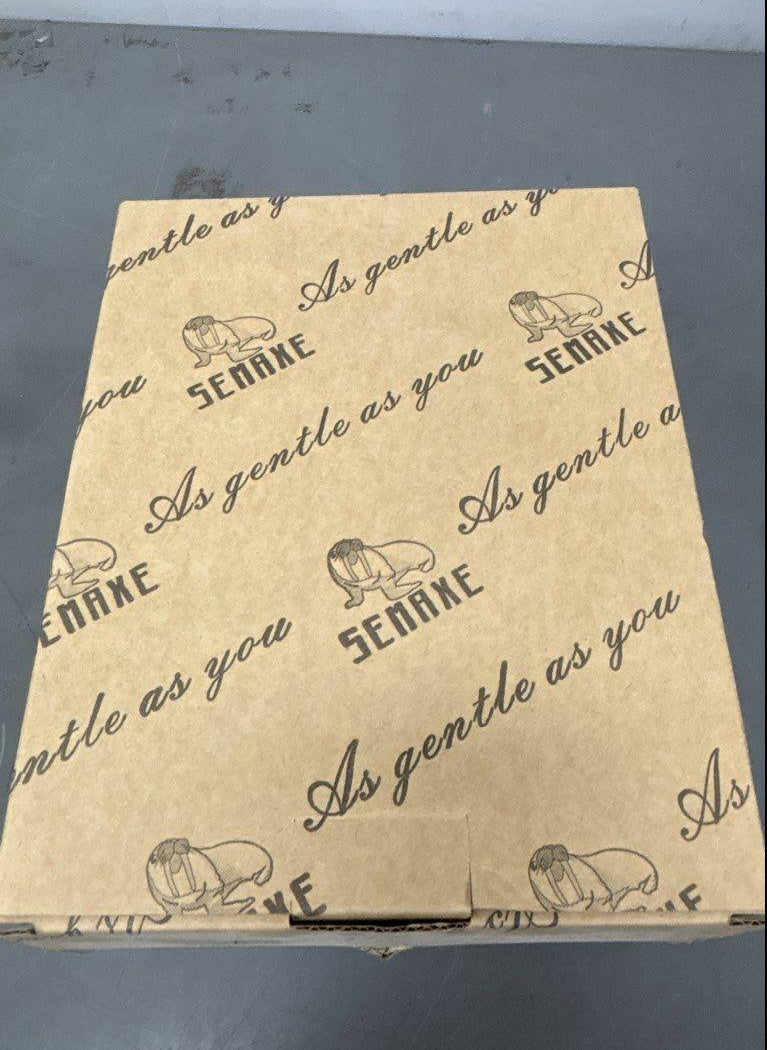 entle as y
As gentle as yo
A
SEMAXE
SEMAXE
you
As gentle as you
As gentle a
EMAXE
SEMAXE
ntle as you
As gentle as you
As
XE
XE